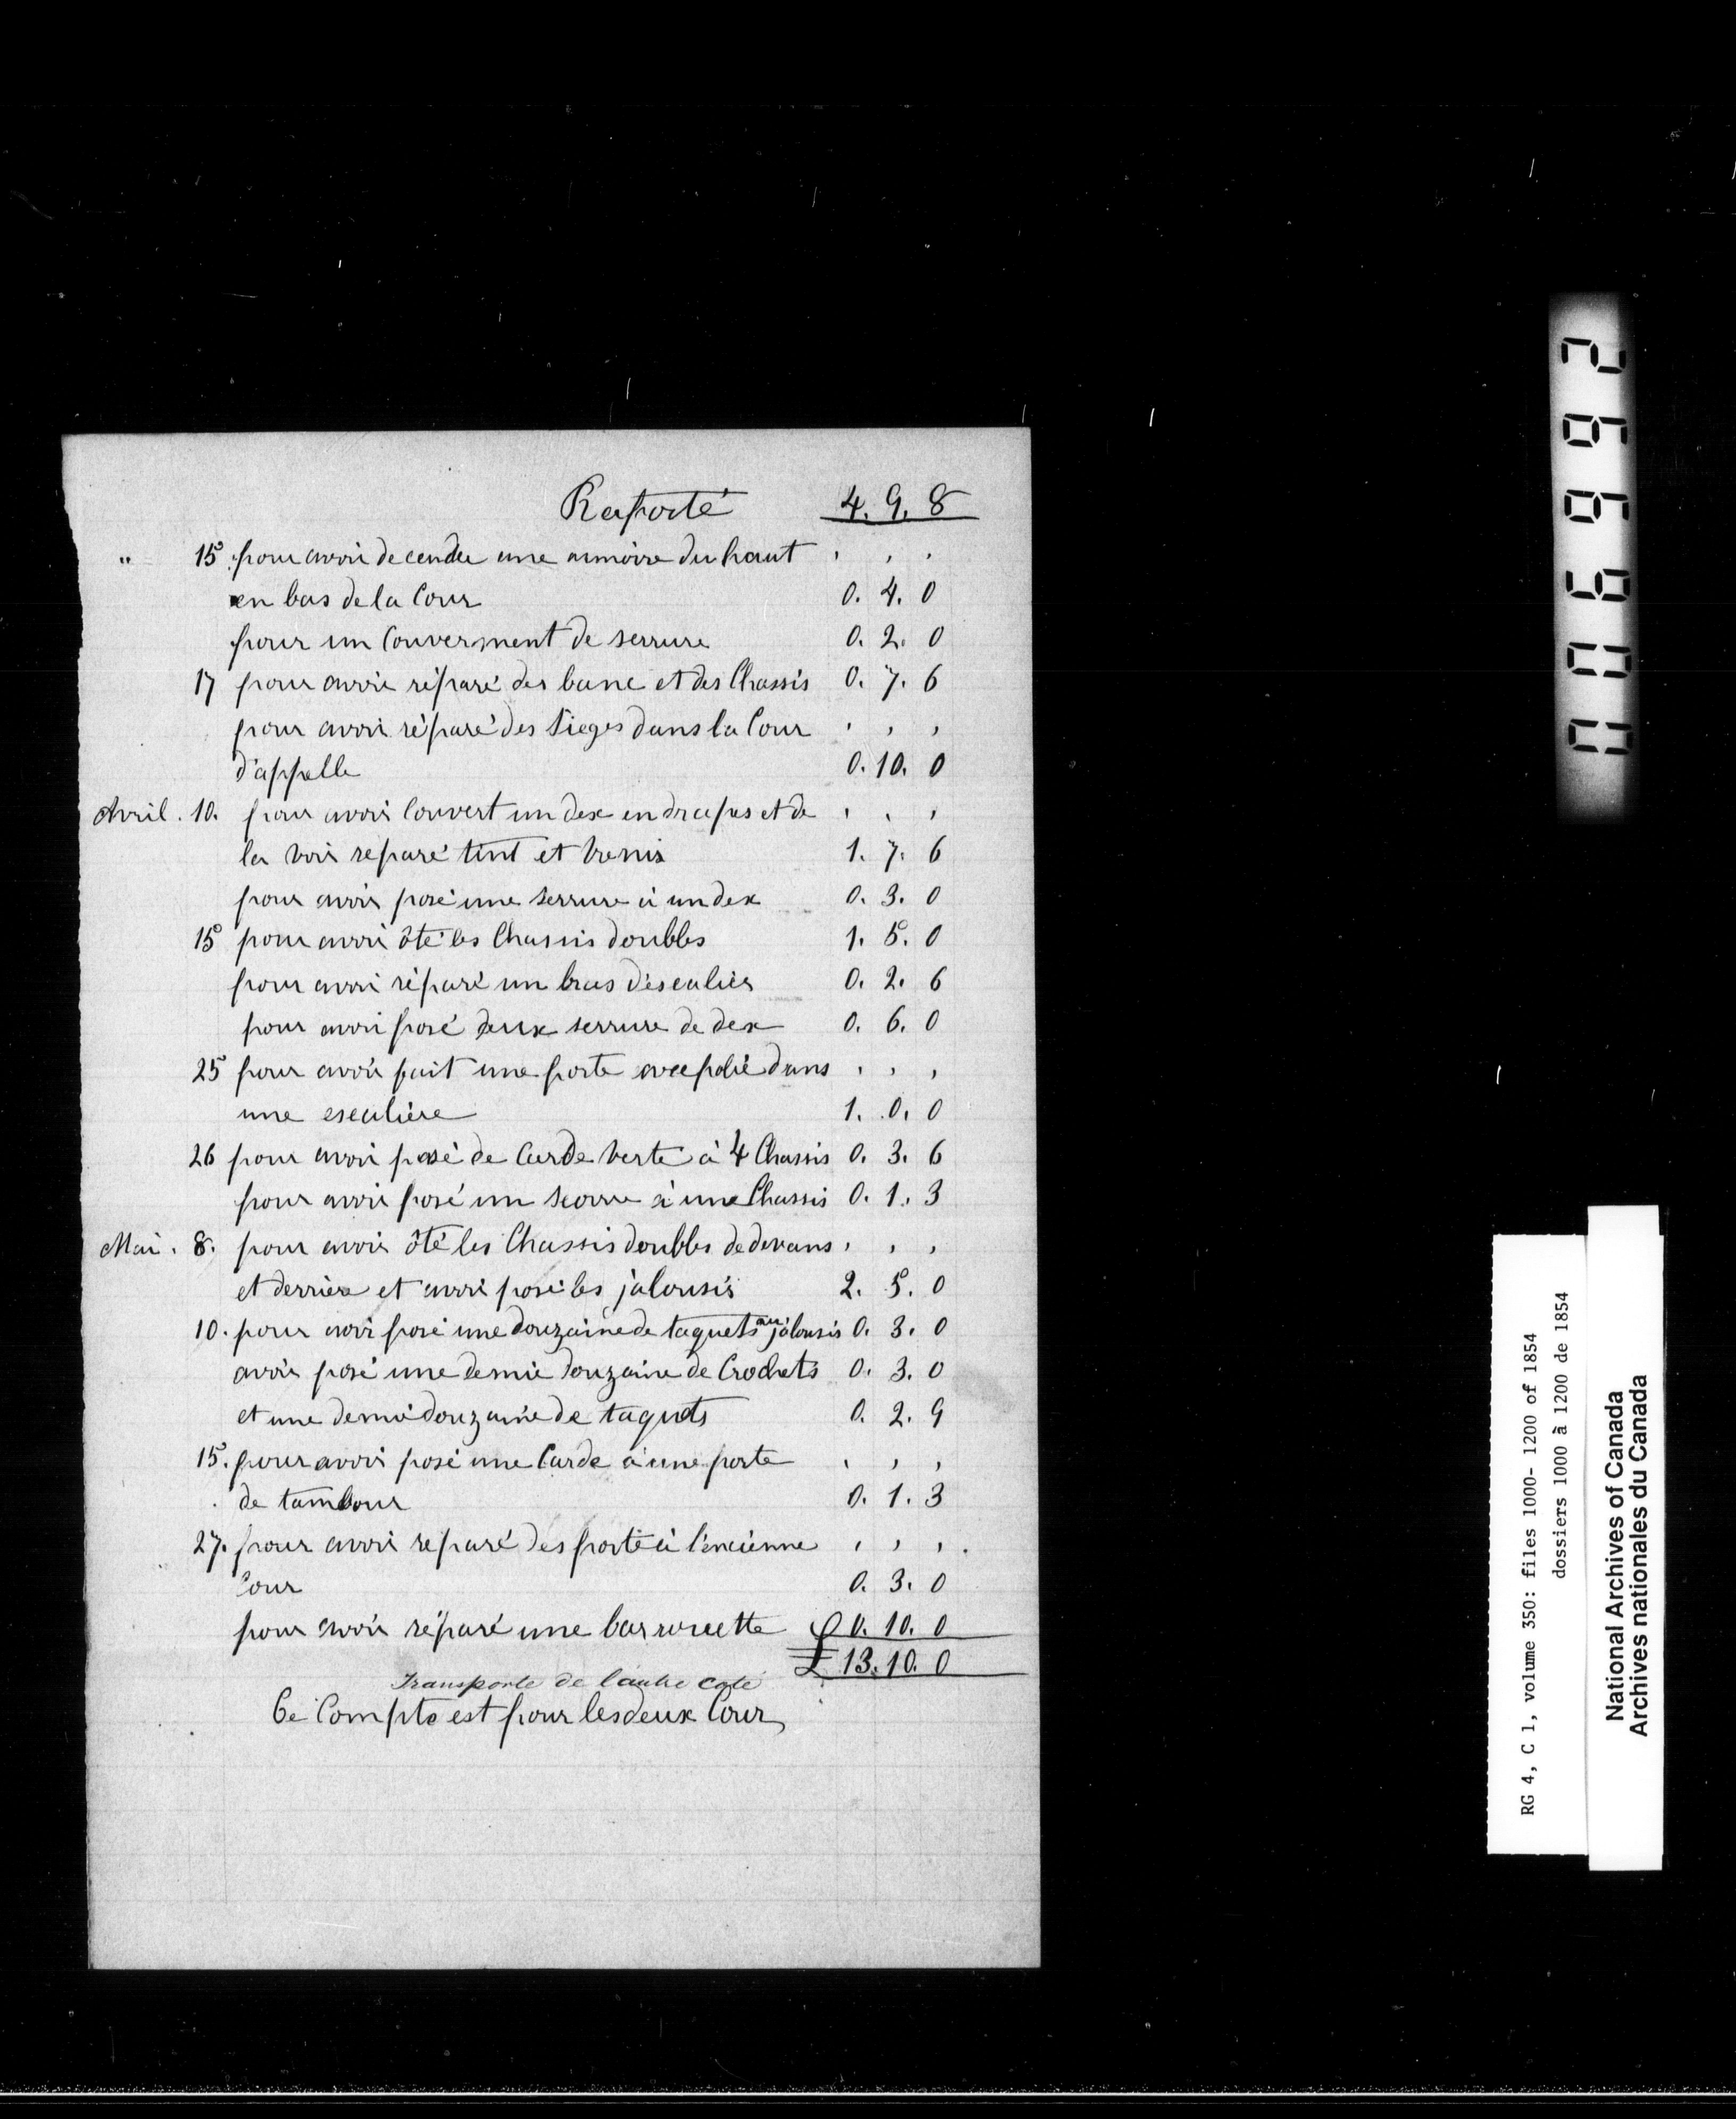 Raporté 4. 9. 8
" 15 pour avoir decendu une armoire du haut , , ,
en bas de la Cour 0. 4. 0
pour un Couverment de serrure 0. 2. 0
17 pour avoir réparé des banc et des Chassis 0. 7. 6
pour avoir réparé des Sieges dans la Cour , , ,
d'appelle 0. 10. 0
Avril. 10. pour avoir Couvert un dex en draps et de , , ,
la bois reparé tint et vernis 1. 7. 6
pour avoir posé une serrure à un dex 0. 3. 0
15 pour avoir ôté les Chassis doubles 1. 5. 0
pour avoir réparé un bras d'escalier 0. 2. 6
pour avoir posé deux serrure de dex 0. 6. 0
25 pour avoir fait une porte avec polie dans , , ,
une escalière 1. 0. 0
26 pour avoir posé de Carde verte à 4 Chassis 0. 3. 6
pour avoir posé un à une Chassis 0. 1. 3
Mai. 8. pour avoir ôté les Chassis doubles de devans , , ,
et derrière et avoir posé les jalousis 2. 5. 0
10. pour avoir posé une douzaine de taquets au jalousis 0. 3. 0
avoir posé une demie douzaine de Crochets 0. 3. 0
et une demie douzaine de taquets 0. 2. 9
15. pour avoir posé une Carde à une porte , , ,
de tambour 0. 1. 3
27. pour avoir reparé des porte à l'encienne , , ,
Cour 0. 3. 0
pour avoir réparé une barrouette 0. 10. 0
£ 13. 10. 0
Transporte de l'autre coté
Ce Compte est pour les deux Cour,
026692
RG 4, C 1, volume 350: files 1000- 1200 of 1854
dossiers 1000 à 1200 de 1854
National Archives of Canada
Archives nationales du Canada